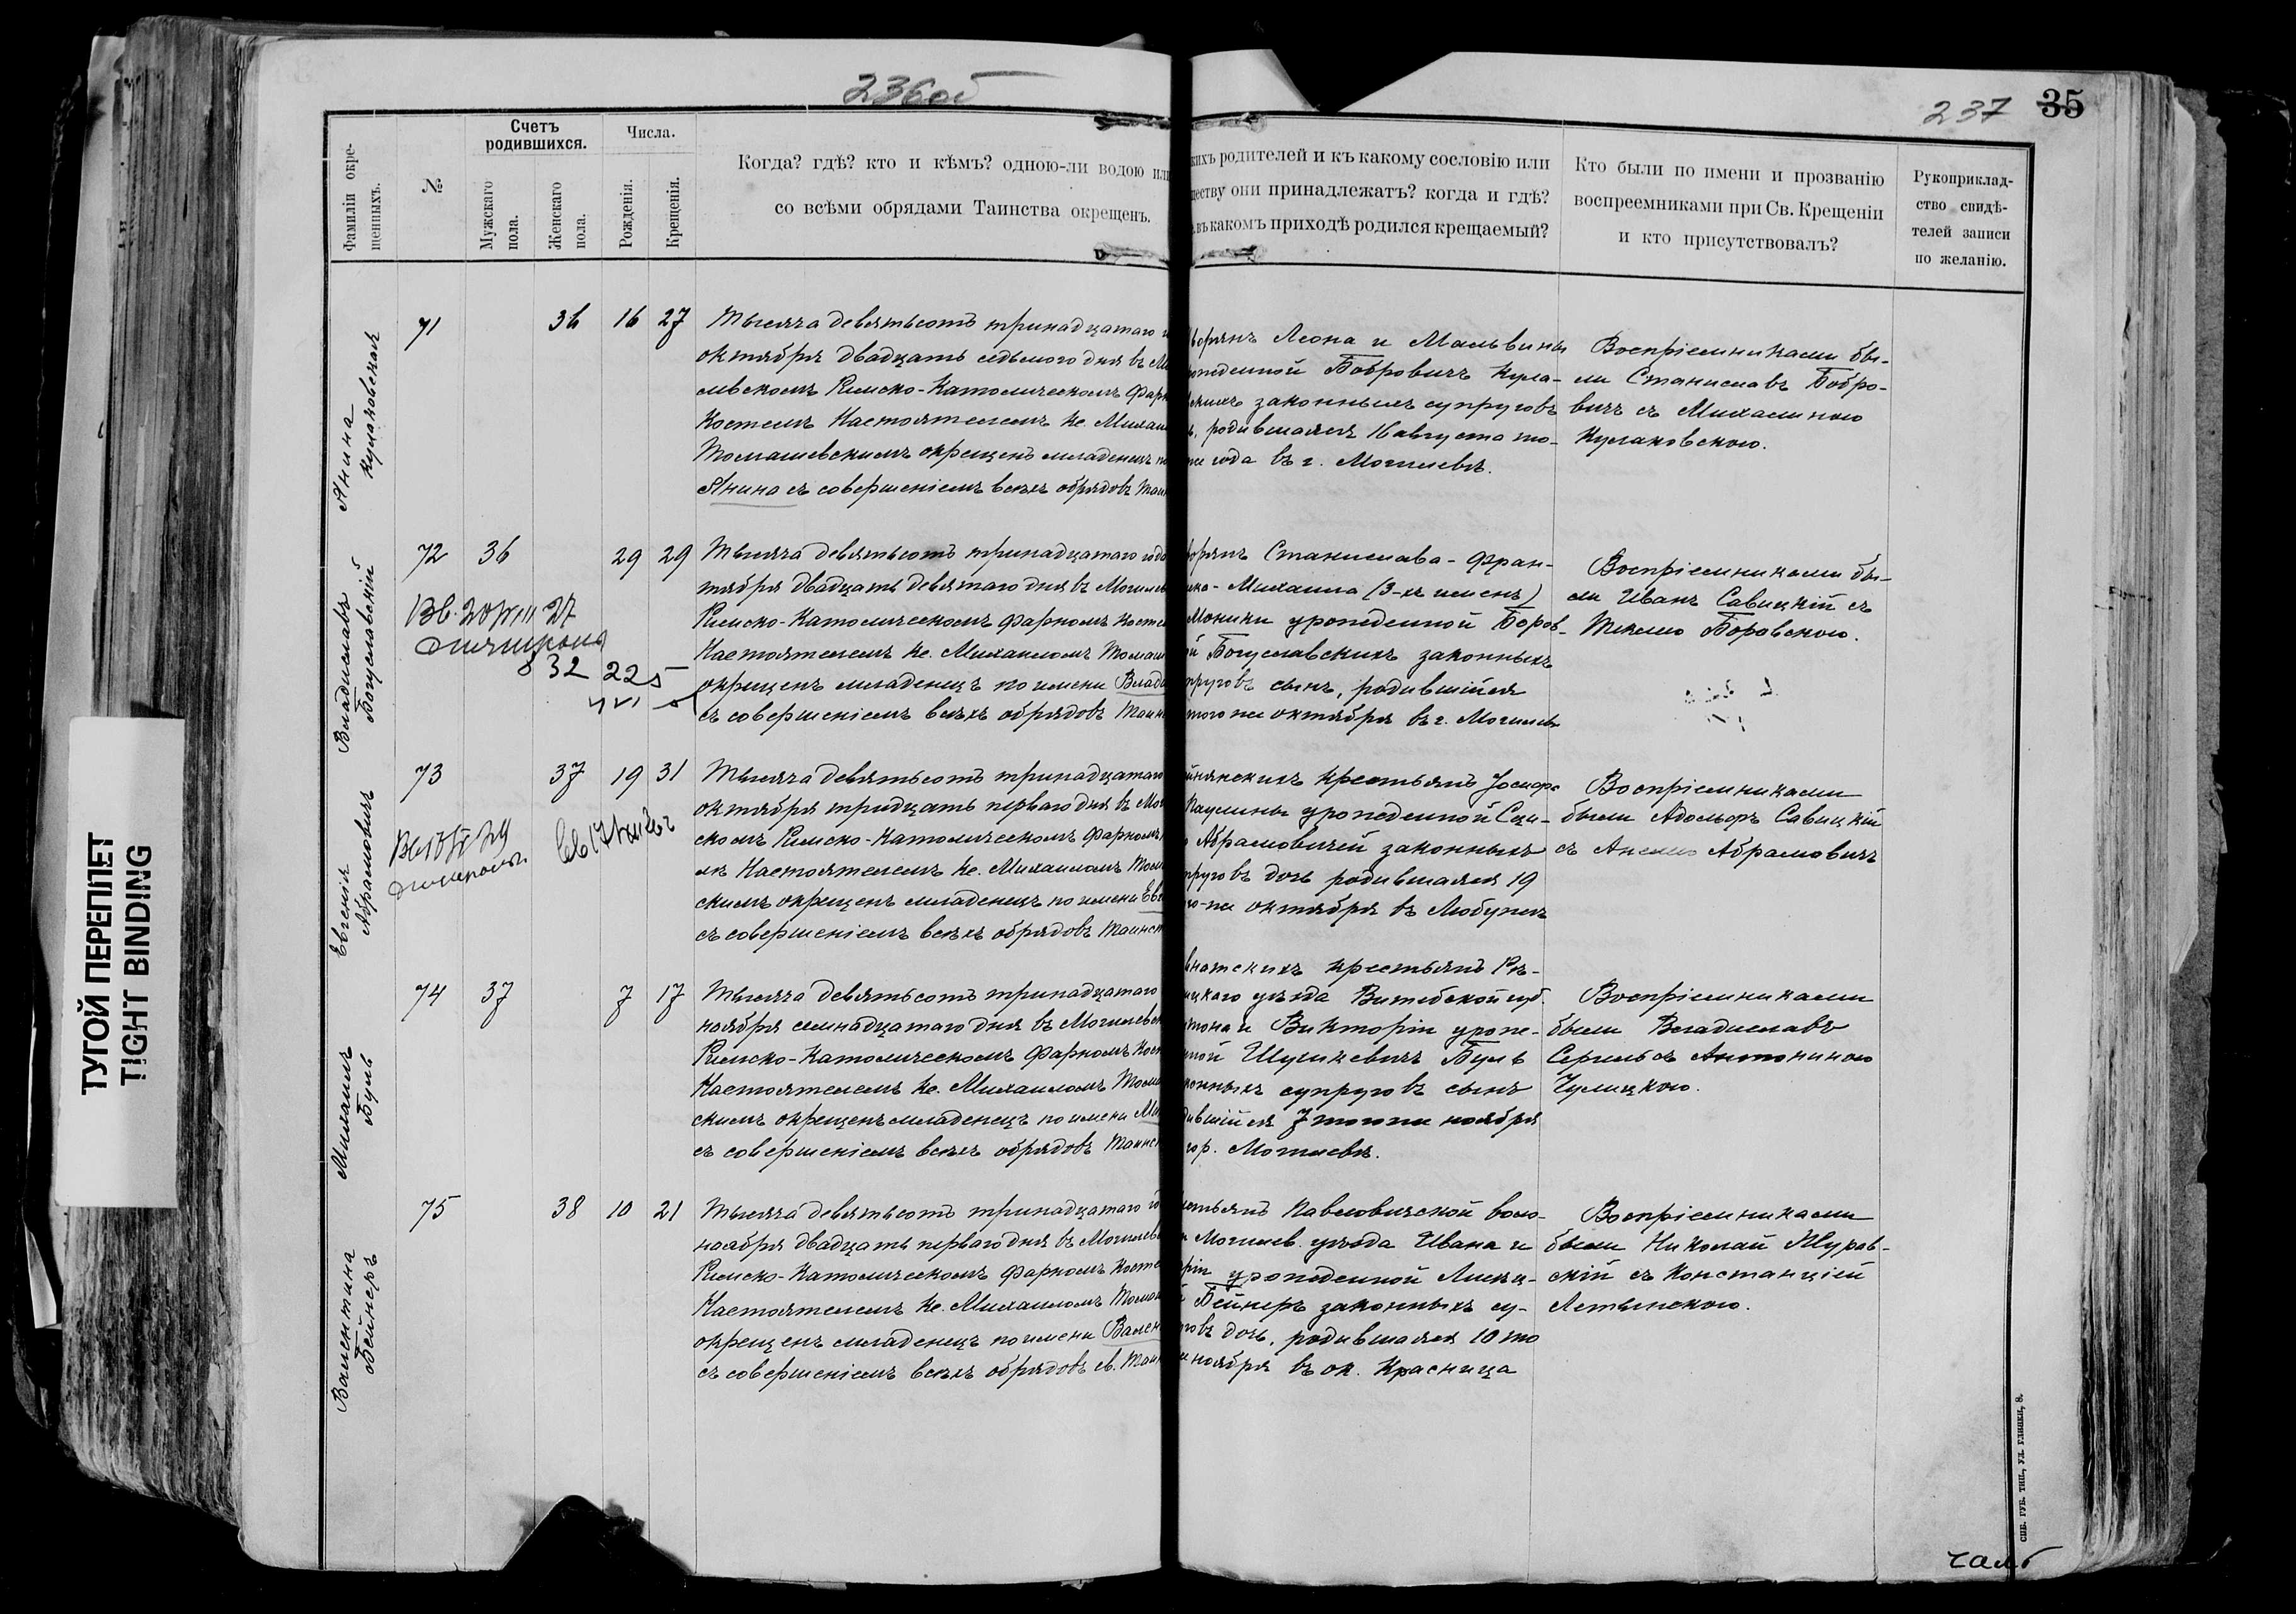 236об
237 35
ТУГОЙ ПЕРЕПЛЕТ
TIGHT BINDING
Фамиліи окре-
щенныхъ.
№
Счетъ
родившихся.
Мужскаго
пола.
Женскаго
пола.
Числа.
Рожденія.
Крещенія.
Когда? гдѣ? кто и кѣмъ? одною-ли водою или
со всѣми обрядами Таинства окрещенъ.
кихъ родителей и къ какому сословію или
ществу они принадлежатъ? когда и гдѣ?
въ какомъ приходѣ родился крещаемый?
Кто были по имени и прозванію
воспреемниками при Св. Крещеніи
и кто присутствовалъ?
Рукоприклад-
ство свидѣ-
телей записи
по желанію.
Янина
Кулаковская
71 36 16 27
Тысяча девятьсотъ тринадцатаго
октября двадцать седьмого дня въ Мо
левскомъ Римско-Католическомъ Фарн
Костелѣ Настоятелемъ Кс. Михаил
Томашевскимъ окрещенъ младенецъ по
Янина съ совершеніемъ всѣхъ обрядовъ Таин
ворянъ Леона и Мальвины
рожденной Бобровичъ Кула-
скихъ законныхъ супруговъ
родившаяся 16 августа то-
же года въ г. Могилевѣ.
Воспріемниками бы-
ли Станиславъ Бобро-
вичъ съ Михалиною
Кулаковскою.
Владиславъ
Богуславскій
72 36 29 29
32 22
Тысяча девятьсотъ тринадцатаго года
тября двадцать девятаго дня въ Могилев
Римско-Католическомъ Фарномъ Косте
Настоятелемъ Кс. Михаиломъ Томаш
окрещенъ младенецъ по имени Влади
съ совершеніемъ всѣхъ обрядовъ Таин
ворянъ Станислава-Фран-
Михаила (3-хъ именъ)
Моники урожденной Боров-
й Богуславскихъ законныхъ
пруговъ сынъ, родившійся
того же октября въ г. Могилевѣ
Воспріемниками бы-
ли Иванъ Савицкій съ
Теклею Боровскою.
Евгенія
Абрамовичъ
73 37 19 31
Тысяча девятьсотъ тринадцатаго
октября тридцать перваго дня въ Мог
скомъ Римско-Католическомъ Фарномъ
лѣ Настоятелемъ Кс. Михаиломъ Тома
скимъ окрещенъ младенецъ по имени Евг
съ совершеніемъ всѣхъ обрядовъ Таинст
крестьянъ Іосифа
Паулины урожденной Сци-
Абрамовичей законныхъ
пруговъ дочь родившаяся 19
го-же октября въ
Воспріемниками
были Адольфъ Савицкій
съ Абрамовичъ
Михаилъ
Буль
74 37 7 17
Тысяча девятьсотъ тринадцатаго
ноября семнадцатаго дня въ Могилевск
Римско-Католическомъ Фарномъ Кост
Настоятелемъ Кс. Михаиломъ Тома
скимъ окрещенъ младенецъ по имени Ми
съ совершеніемъ всѣхъ обрядовъ Таинст
крестьянъ Рѣ-
ицкаго уѣзда Витебской губ.
тона и Викторіи урож-
ной Шуликевичъ Буль
конныхъ супруговъ сынъ
дившійся 7 того же ноября
гор. Могилевѣ.
Воспріемниками
были Владиславъ
съ Антониною
Чулицкою.
Валентина
Бейнеръ
75 38 10 21
Тысяча девятьсотъ тринадцатаго го
ноября двадцать перваго дня въ Могилев
Римско-Католическомъ Фарномъ Косте
Настоятелемъ Кс. Михаиломъ Тома
окрещенъ младенецъ по имени Вален
съ совершеніемъ всѣхъ обрядовъ св. Таин
естьянъ Павловичской воло-
и Могилев. уѣзда Ивана и
ріи урожденной
Бейнеръ законныхъ су-
говъ дочь, родившаяся 10 то
ноября въ ок. Красница
Воспріемниками
были Николай Журав-
скій съ Констанціей
Летынскою.
СПБ. ГУБ. ТИП., УЛ. ГЛИНКИ, 8.